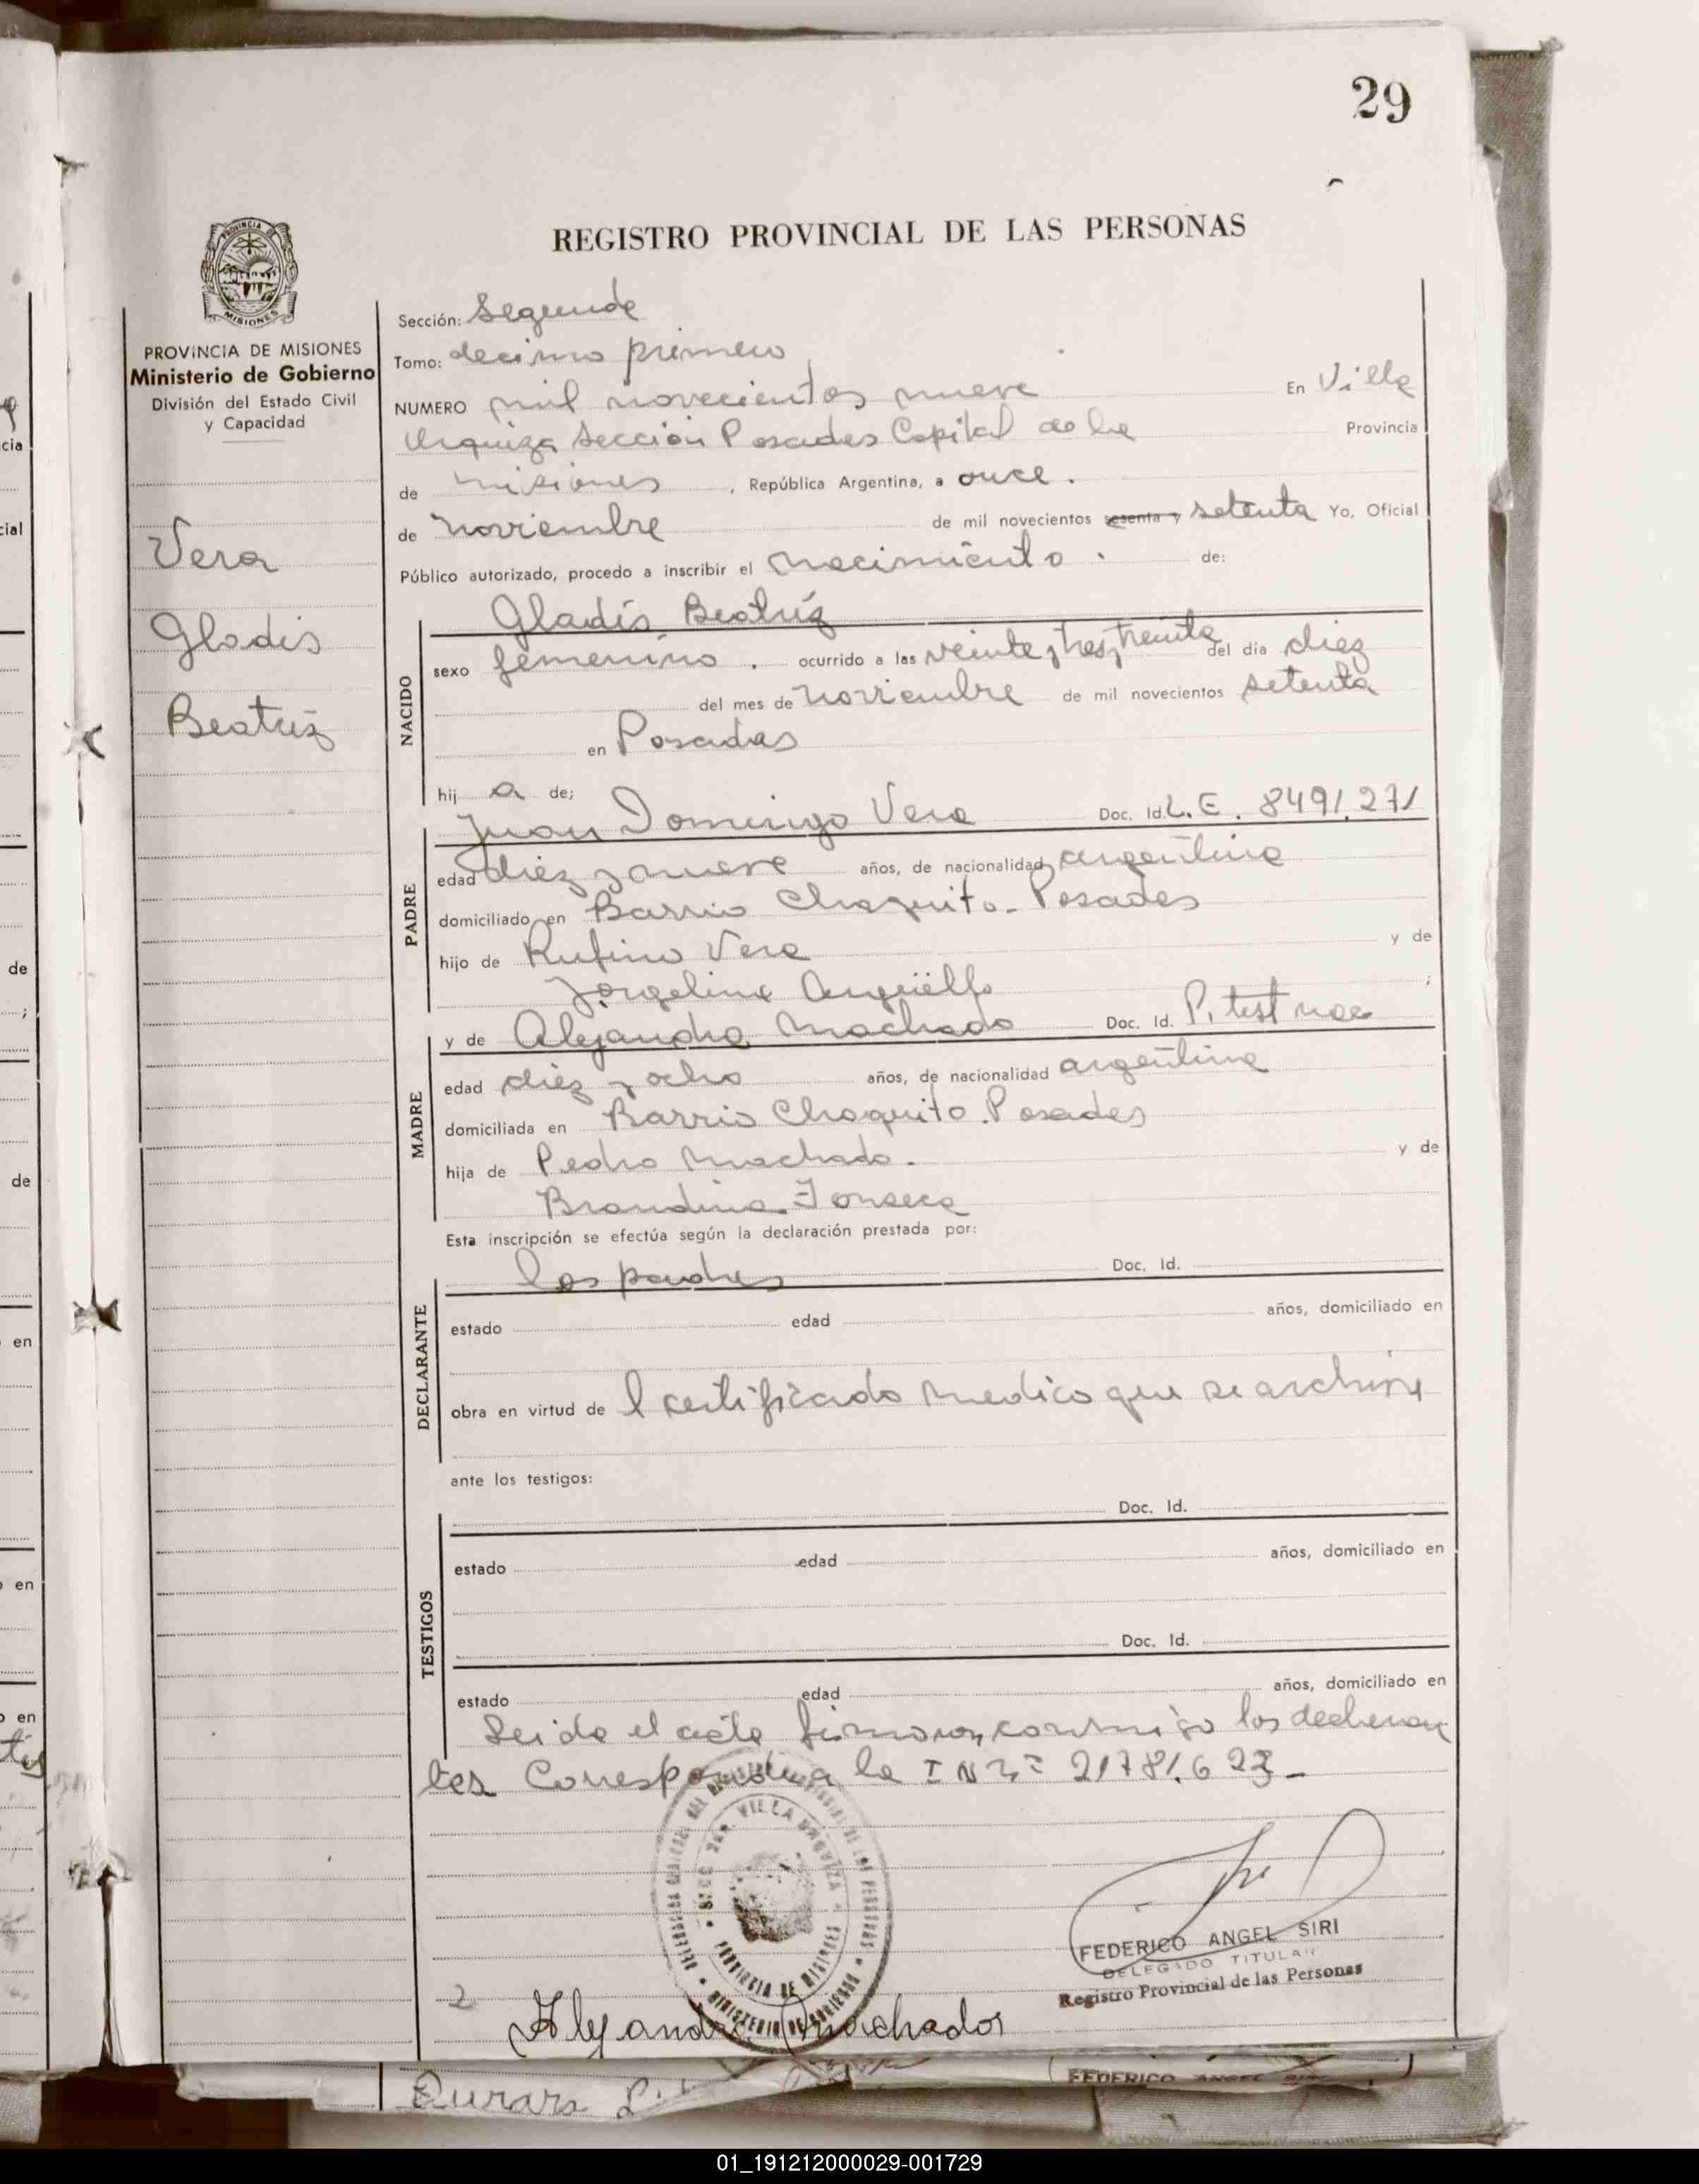 29
REGISTRO PROVINCIAL DE LAS PERSONAS
PROVINCIA DE MISIONES
Ministerio de Gobierno
División del Estado Civil
y Capacidad
Vera
Gladis
Beatriz
Sección: Segunda
Tomo: decimo primero
NUMERO mil novecientos nueve En Villa
Urquiza Sección Posadas Capital de la Provincia
de misiones, República Argentina, a once.
de noviembre de mil novecientos sesenta y setenta Yo, Oficial
Público autorizado, procedo a inscribir el nacimiento. de:
Gladis Beatriz
NACIDO
sexo femenino. ocurrido a las veinte y tres y treinta del día diez
del mes de noviembre de mil novecientos setenta
en Posadas
hij a de;
Juan Domingo Vera Doc. Id. L.E. 8491.271
PADRE
edad diez y nueve años, de nacionalidad argentina
domiciliado en Barrio Chaquito - Posadas
hijo de Rufino Vera y de
Jorgelina Argüello ;
y de Alejandra Machado Doc. Id. P. test nac
MADRE
edad diez y ocho años, de nacionalidad argentina
domiciliada en Barrio Chaquito. Posadas
hija de Pedro Machado. y de
Brandina Fonseca
Esta inscripción se efectúa según la declaración prestada por:
los padres Doc. Id.
DECLARANTE
estado edad años, domiciliado en
obra en virtud de l certificado medico que se archiva
ante los testigos:
Doc. Id.
TESTIGOS
estado edad años, domiciliado en
Doc. Id.
estado edad años, domiciliado en
Leida el acta firmaron conmigo los declaran
tes Corresponde a la I N 21781.623 -
SECC. 2da. VILLA URQUIZA
PROVINCIA DE MISIONES
MINISTERIO DE GOBIERNO
FEDERICO ANGEL SIRI
DELEGADO TITULAR
Registro Provincial de las Personas
2
Alejandra Machado
FEDERICO ANGEL SIRI
01_191212000029-001729